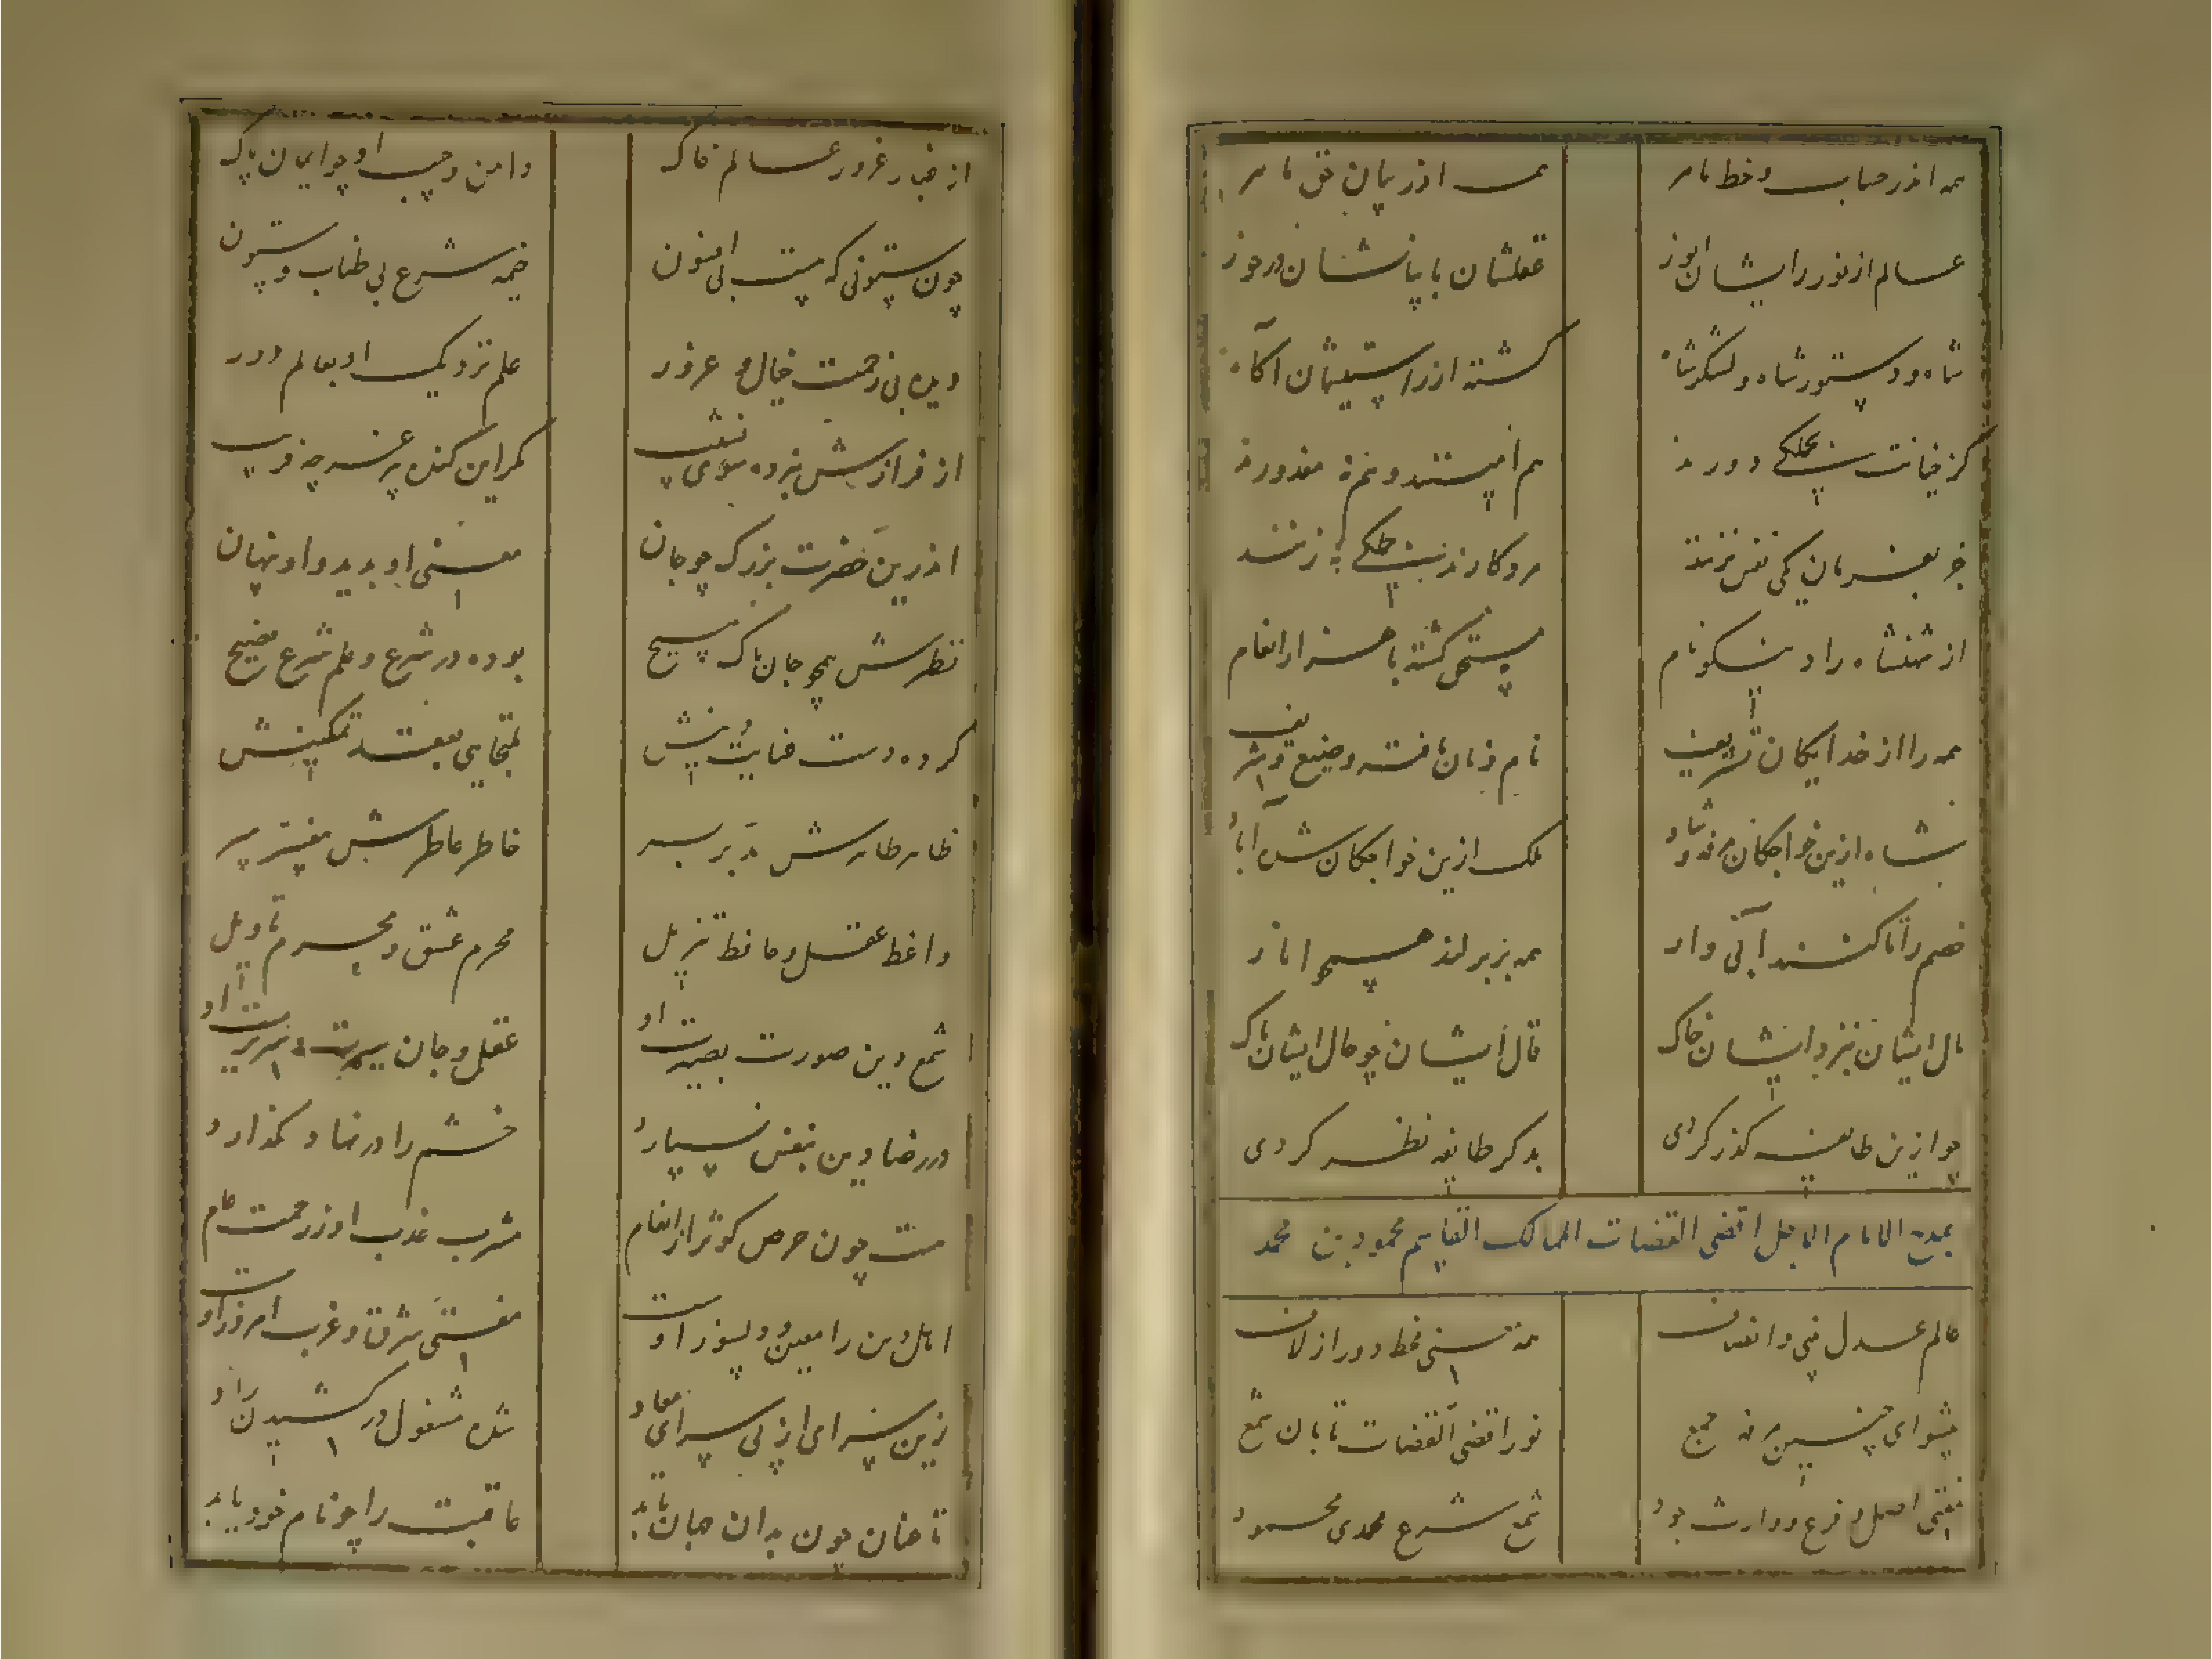 همه اندر حساب و خط ماهر
همه اندر بیان حق ماهر
عالم از نور رایشان افروز
عقلشان با بیانشان در حوز
شاه و دستور شاه و لشکر شاه
گشته از راستیشان آگاه
کز خیانت بجملگی دورند
هم امینند و هم نه مغدورند
جز بفرمان یکی نفس نزنند
مرد کارند جملگی نه زنند
از شهنشاه راد نیکونام
مستحق گشته با هزار انعام
همه را از خدایگان تشریف
نام و نان یافته وضیع و شریف
شاه ازین خواجکان مرفه و شاد
ملک ازین خواجکان شده آباد
خصم را تا کنند آنی وار
همه بربرلند همچو انار
مال ایشان بنزد ایشان خاک
قال ایشان چو حال ایشان پاک
چو ازین طایفه گذر کردی
بدگر طایفه نظر کردی
بمدح الامام الاجل اقضی القضات الممالک القایم محمود بن محمد
عالم عدل فنی و انصاف
همه سنی فقط دور از لاف
پیشوای چنین مرفه جمع
نور اقضی القضات تابان شمع
مفتی اصل و فرع و وارث جود
شمع شرع محمدی محمود
از غبار غرور عالم خاک
دامن و جیب او چو ایمان پاک
چون ستونی که هست بی افسون
خیمه شرع بی طناب و ستون
دیده بی زحمت خیال و غرور
علم نزدیک او بعالم دور
از فراز سپس نزده سوی نشیب
مکر این کنده پیر عشوه فریب
اندرین حضرت بزرگ چو جان
معنی او بدید و او پنهان
نظرش همچو جان پاک مسیح
بوده در شرع و علم شرع فصیح
کرده دست عنایت دینش
بتجابی بعقد تمکینش
ظاهر طاهرش مدبر بر
خاطر عاطرش مفسر سر
واعظ عقل و حافظ تنزیل
محرم عشق و محرم تاویل
شمع دین صورت بصیرت او
عقل و جان سیرت سریرت او
در رضا دین بنفس نسپارد
خشم را در رضا و نگذارد
هست چون حوض کوثر از انعام
مشرب عذب او ز رحمت عام
اهل دین را معین و دلسوز اوست
مفتی شرق و غرب امروز اوست
زین سرای از پی سرای معاد
شده مشغول در کشیدن زاد
تا چنان چون بدان جهان یابد
عاقبت را چو نام خود یابد